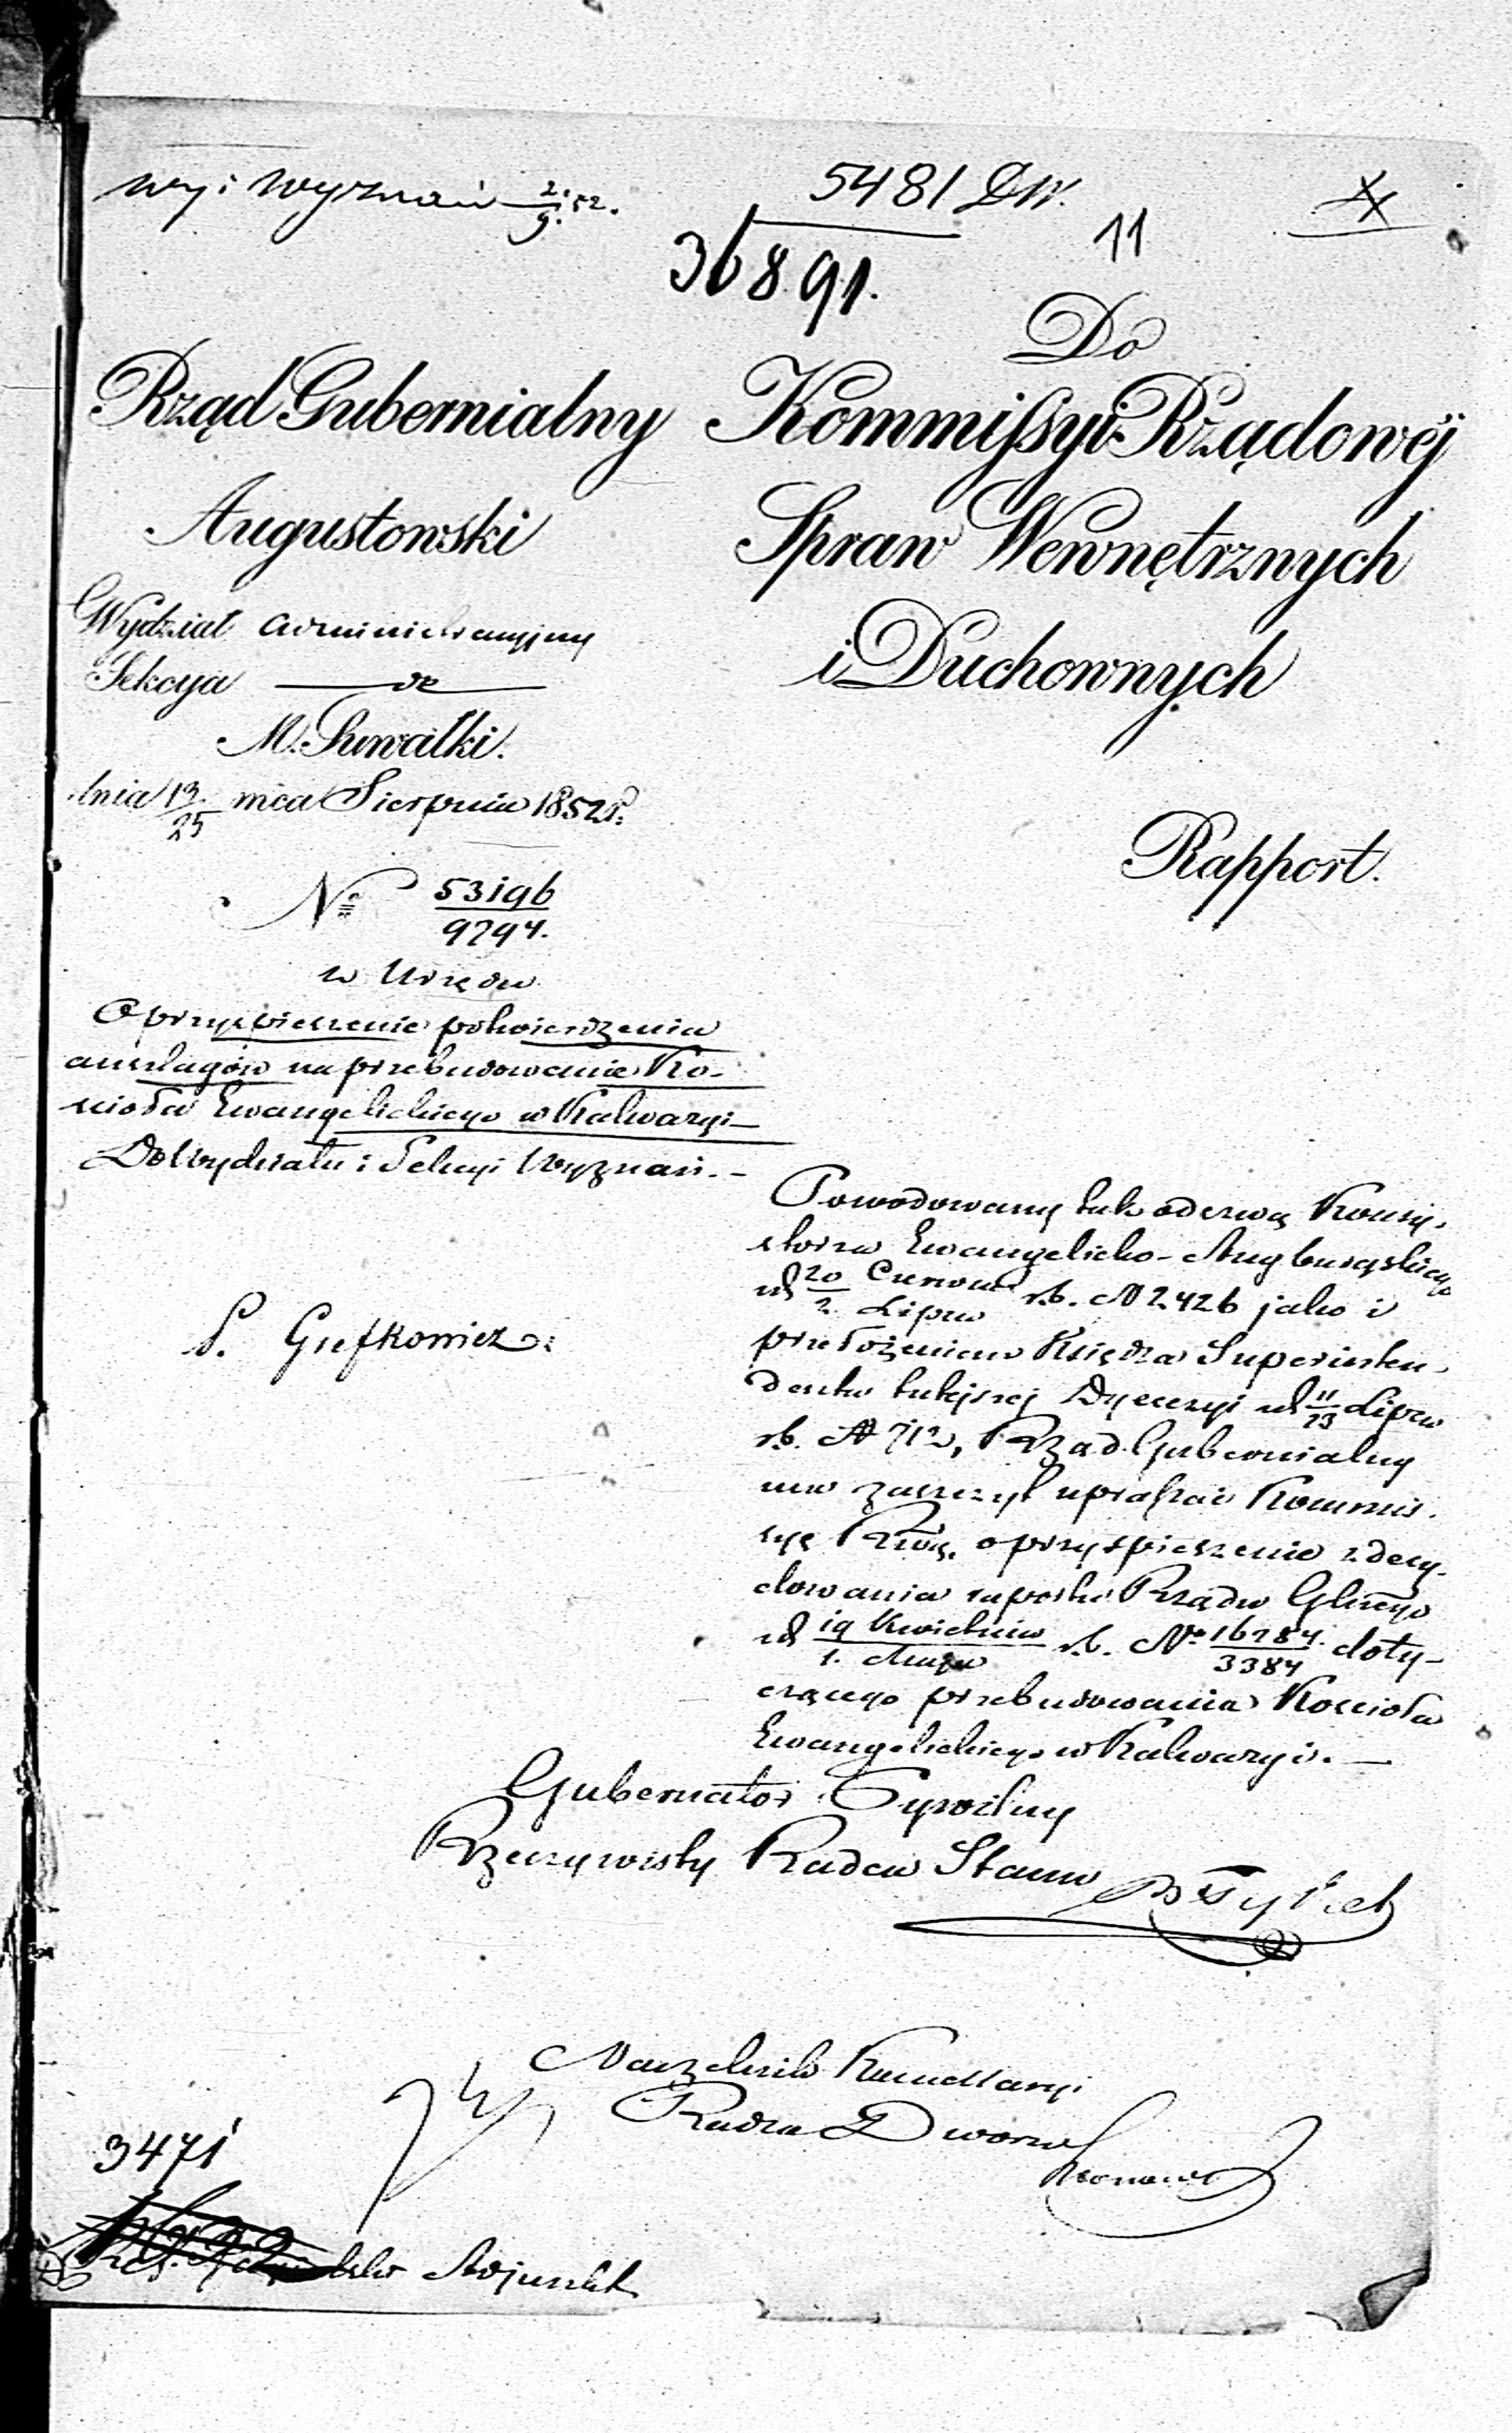 wyi Wyznań 2/9. 52.
5481 DW.
11
36891.
Do
Rząd Gubernialny
Kommissyi Rządowéj
Augustowski
Spraw Wewnętrznych
i Duchownych
Wydział Administracyjny
Sekcya
M. Suwałki.
dnia 13/25 mca Sierpnia 1852 r.
Rapport.
No 53196/9294.
w Urzędu
O przyspieszenie potwierdzenia
anszlagów na przebudowanie Ko-
ścioła Ewangelickiego w Kalwaryi
Do Wydziału i Sekcyi Wyznań. -
P. Grefkowicz:
Powodowany tak odezwą Konsy-
storza Ewangelicko-Augsburgskiego
od 20 Czerwca/2. Lipca r.b. N 2426 jako i
przełożeniem Księdza Superinten-
denta tutejszej Dyecezyi od 11/23 Lipca
r.b. N 712, Rząd Gubernialny
ma zaszczyt upraszać Kommis-
syę Rwą. o przyspieszenie zdecy-
dowania raportu Rządu Glnego
od 19 Kwietnia/1. Maja r.b. No 16284./3384 doty-
czącego przebudowania Kościoła
Ewangelickiego w Kalwaryi. —
Gubernator Cywilny
Rzeczywisty Radca Stanu
Naczelnik Kancellaryi
Radca Dworu
3471
Adjunkt